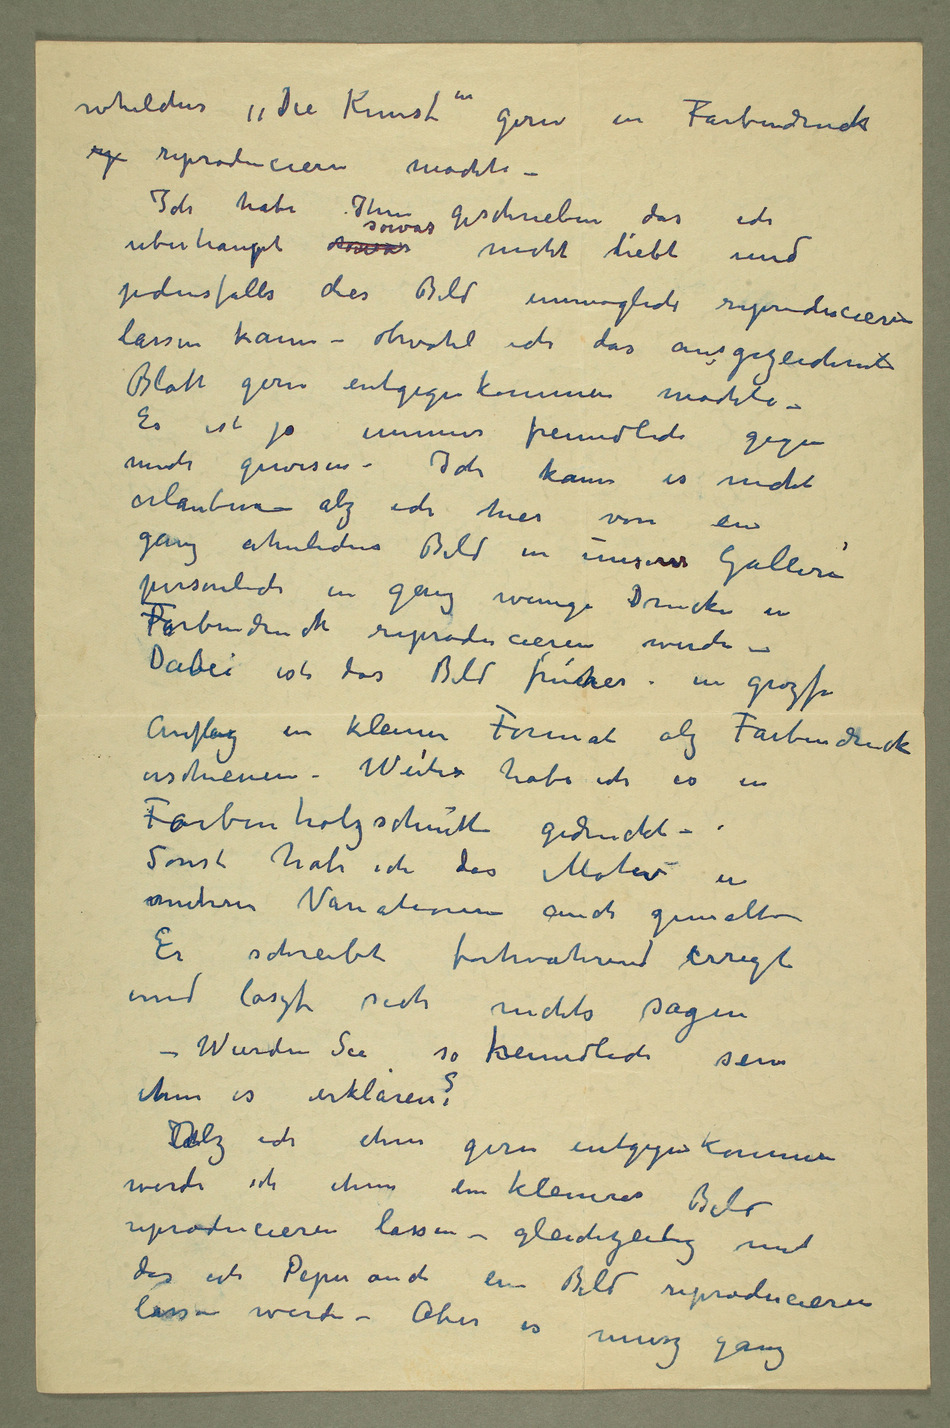 welches „Die Kunst“ gern in Farbendruck
reproducieren mochte –
Ich habe Ihm geschrieben das ich
uberhaupt sowas nicht liebt und
jedensfalls dies Bild unmoglich reproducieren
lassen kann – obwohl ich das ausgezeichnete
Blatt gern entgegenkommen mochte –
Es ist ja immer freundlich gegen
mich gewesen – Ich kann es nicht
erlauben – alz ich hier von ein
ganz ahnliches Bild in unserer Galleri
personlich in ganz wenige Drucke in
Farbendruck reproducieren werde –
Dabei ist das Bild früher – in grozse
Auflag in kleiner Format alz Farbendruck
erschienen – Weiter habe ich es in
Farbenholzschnitt gedruckt –
Sonst habe ich das Motiv in
mehrere Variationen auch gemalt –
Er schreibt fortwahrend erregt
und laszt sich nichts sagen
– Wurden Sie so freundlich sein
ihm es erklären?
Alz ich ihm gern entgegenkommen
werde ich ihm ein kleineres Bild
reproducieren lassen – gleichzeitig mit
das ich Peper auch ein Bild reproducieren
lassen werde – Aber es musz ganz